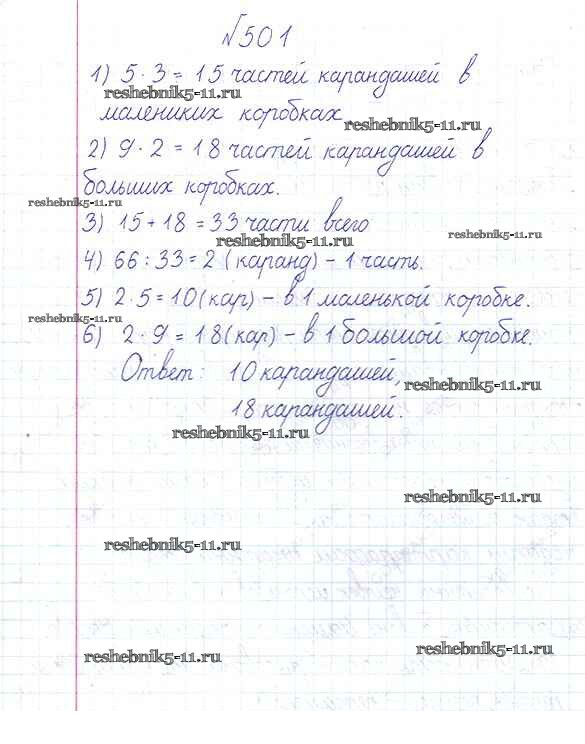 №501
1) 5·3 = 15 частей карандашей в
reshebnik5-11.ru
малениких коробках
reshebnik5-11.ru
2) 9·2 = 18 частей карандашей в
больших коробках.
reshebnik5-11.ru
3) 15+18 = 33 части всего
reshebnik5-11.ru
reshebnik5-11.ru
4) 66:33=2 (каранд) – 1 часть.
5) 2·5=10(кар) – в 1 маленькой коробке.
reshebnik5-11.ru
6) 2·9=18(кар) – в 1 большой коробке.
Ответ: 10 карандашей,
reshebnik5-11.ru
18 карандашей.
reshebnik5-11.ru
reshebnik5-11.ru
reshebnik5-11.ru
reshebnik5-11.ru
reshebnik5-11.ru